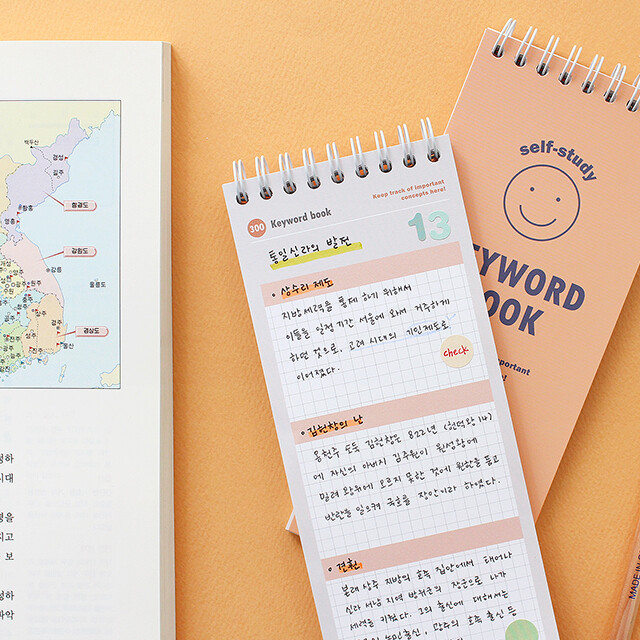 백두산
경성
길주
함흥
함경도
영흥
강원도
강릉
울릉도
수원
원주
충주
상주
성주
경주
경상도
진주
울산
300 Keyword book
Keep track of important
concepts here!
13
통일신라의 발전
• 상수리 제도
지방세력을 통제 하기 위해서
이들을 일정 기간 서울에 와서 거주하게
하던 것으로, 고려 시대의 기인제도로
이어졌다.
check
• 김헌창의 난
웅천주 도독 김헌창은 822년 (헌덕왕 14)
에 자신의 아버지 김주원이 원성왕에
밀려 왕위에 오르지 못한 것에 원한을 품고
반란을 일으켜 국호를 장안이라 하였다.
• 견훤
본래 상주 지방의 호족 집안에서 태어나
신라 서남 지역 방위군의 장군으로 나가
세력을 키웠다. 그의 출신에 대해서는
농민출신, 광주의 호족 출신 등
self-study
KEYWORD
BOOK
important
MADE IN